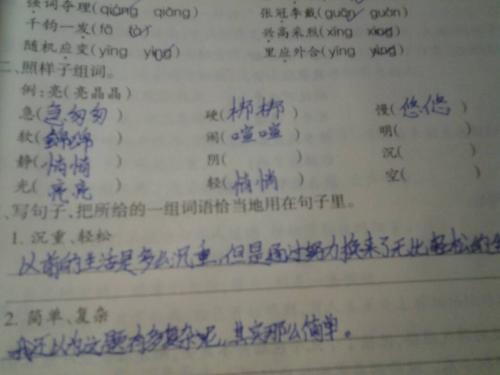 强词夺理(qiáng qiǎng) 张冠李戴(guān guàn)
千钧一发(fā fà) 兴高采烈(xìng xīng)
随机应变(yīng yìng) 里应外合(yīng yìng)
二、照样子组词。
例:亮(亮晶晶)
急(急匆匆) 硬(梆梆) 慢(悠悠)
软(绵绵) 闹(喧喧) 明( )
静(悄悄) 阴( ) 沉( )
光(亮亮) 轻(悄悄) 空( )
写句子,把所给的一组词语恰当地用在句子里。
1. 沉重、轻松
以前的生活是多么沉重,但是通过努力换来了无比轻松的
2. 简单、复杂
我还以为这题有多复杂呢,其实那么简单。